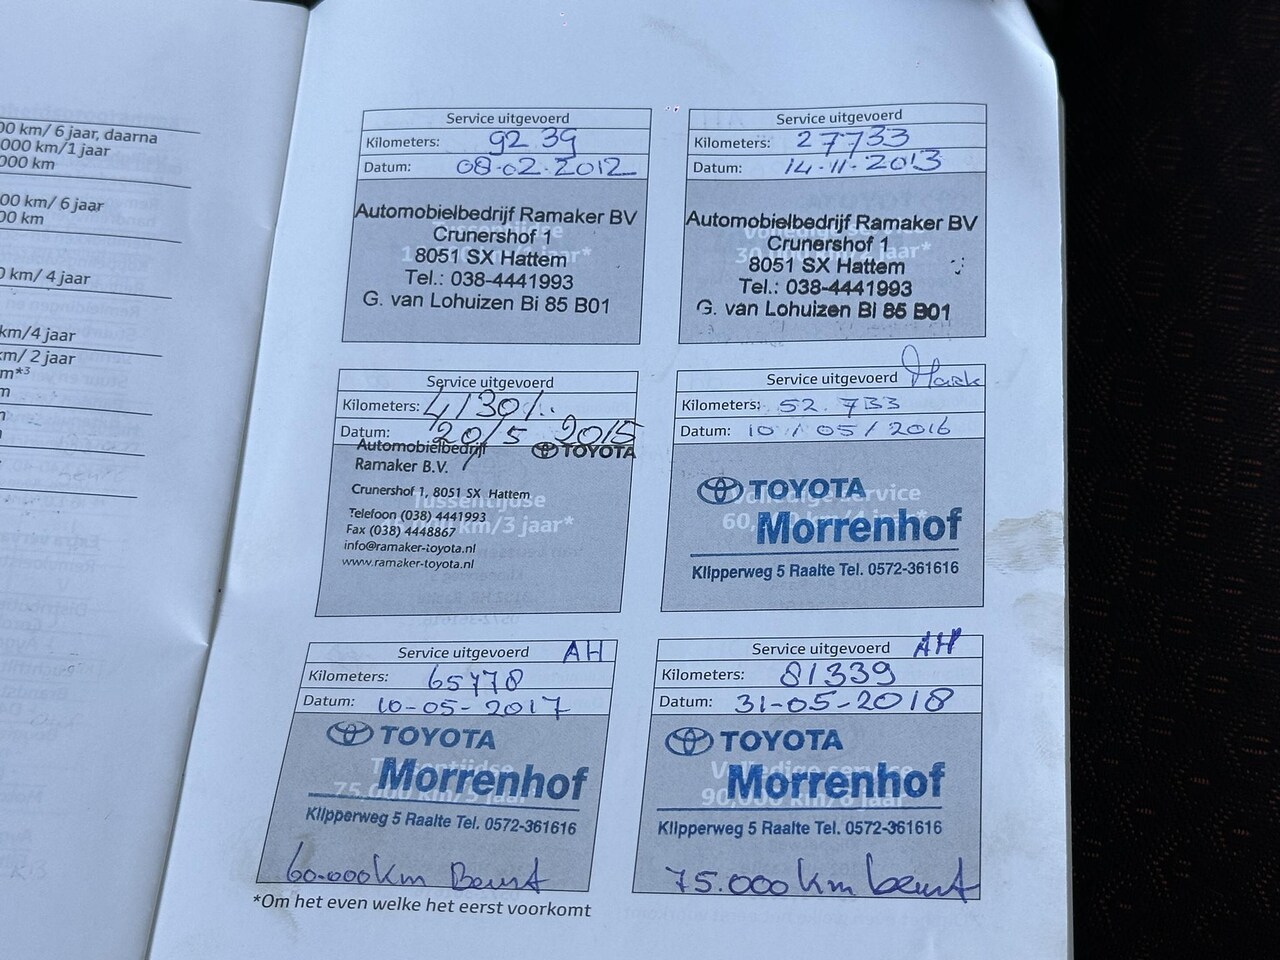 00 km/ 6 jaar, daarna
000 km/1 jaar
000 km
00 km/ 6 jaar
00 km
0 km/ 4 jaar
km/4 jaar
km/ 2 jaar
m*³
m
Service uitgevoerd
Kilometers: 9239
Datum: 08-02-2012
Automobielbedrijf Ramaker BV
Crunershof 1
8051 SX Hattem
Tel.: 038-4441993
G. van Lohuizen Bi 85 B01
Service uitgevoerd
Kilometers: 27733
Datum: 14-11-2013
Automobielbedrijf Ramaker BV
Volledige service
30,000 km/2 jaar*
Crunershof 1
8051 SX Hattem
Tel.: 038-4441993
G. van Lohuizen Bi 85 B01
Service uitgevoerd
Kilometers: 41301
Datum: 20/5 2015
Automobielbedrijf
Ramaker B.V.
TOYOTA
Crunershof 1, 8051 SX Hattem
Tussentijdse
km/3 jaar*
Telefoon (038) 4441993
Fax (038) 4448867
info@ramaker-toyota.nl
www.ramaker-toyota.nl
Service uitgevoerd
Kilometers: 52.733
Datum: 10/05/2016
TOYOTA
Volledige service
60,000 km/4 jaar*
Morrenhof
Klipperweg 5 Raalte Tel. 0572-361616
Service uitgevoerd AH
Kilometers: 65778
Datum: 10-05-2017
TOYOTA
Tussentijdse
75,000 km/5 jaar*
Morrenhof
Klipperweg 5 Raalte Tel. 0572-361616
60.000 km Beurt
Service uitgevoerd AH
Kilometers: 81339
Datum: 31-05-2018
TOYOTA
Volledige service
90,000 km/6 jaar*
Morrenhof
Klipperweg 5 Raalte Tel. 0572-361616
75.000 km beurt
*Om het even welke het eerst voorkomt